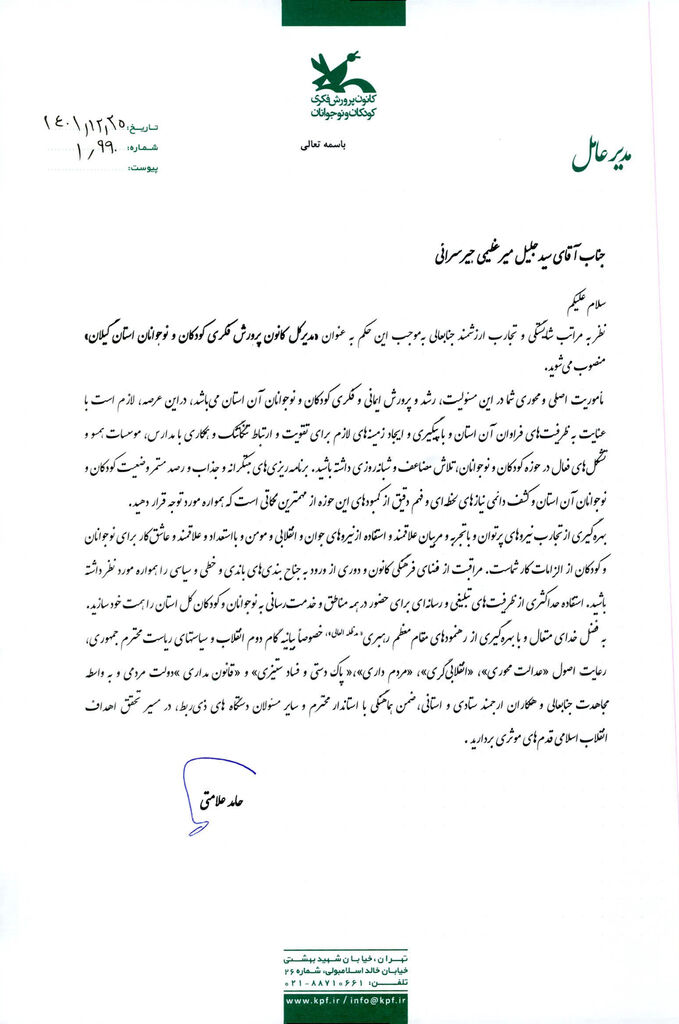 کانون پرورش فکری
کودکان و نوجوانان
باسمه تعالی
مدیر عامل
تاریخ: ۱۴۰۱/۱۲/۲۵
شماره: ۱/۹۹۰
پیوست:
جناب آقای سید جلیل میرعظیمی جیرسرائی
سلام علیکم
نظر به مراتب شایستگی و تجارب ارزشمند جنابعالی به‌موجب این حکم به عنوان «مدیرکل کانون پرورش فکری کودکان و نوجوانان استان گیلان»
منصوب می‌شوید.
مأموریت اصلی و محوری شما در این مسئولیت، رشد و پرورش ایمانی و فکری کودکان و نوجوانان آن استان می‌باشد، دراین عرصه، لازم است با
عنایت به ظرفیت‌های فراوان آن استان و با پیگیری و ایجاد زمینه‌های لازم برای تقویت و ارتباط تنگاتنگ و همکاری با مدارس، موسسات همسو و
تشکل‌های فعال در حوزه کودکان و نوجوانان، تلاش مضاعف و شبانه‌روزی داشته باشید. برنامه‌ریزی‌های مبتکرانه و جذاب و رصد مستمر وضعیت کودکان و
نوجوانان آن استان و کشف دائمی نیازهای لحظه‌ای و فهم دقیق از کمبودهای این حوزه از مهمترین نکاتی است که همواره مورد توجه قرار دهید.
بهره‌گیری از تجارب نیروهای پرتوان و باتجربه و مربیان علاقمند و استفاده از نیروهای جوان و انقلابی و مومن و بااستعداد و علاقمند و عاشق کار برای نوجوانان
و کودکان از الزامات کار شماست. مراقبت از فضای فرهنگی کانون و دوری از ورود به جناح بندی‌های باندی و خطی و سیاسی را همواره مورد نظر داشته
باشید. استفاده حداکثری از ظرفیت‌های تبلیغی و رسانه‌ای برای حضور در همه مناطق و خدمت‌رسانی به نوجوانان و کودکان کل استان را همت خود سازید.
به فضل خدای متعال و با بهره‌گیری از رهنمودهای مقام معظم رهبری «مدظله العالی»، خصوصاً بیانیه گام دوم انقلاب و سیاستهای ریاست محترم جمهوری،
رعایت اصول «عدالت محوری»، «انقلابی‌گری»، «مردم داری»،« پاک دستی و فساد ستیزی» و «قانون مداری »دولت مردمی و به واسطه
مجاهدت جنابعالی و همکاران ارجمند ستادی و استانی، ضمن هماهنگی با استاندار محترم و سایر مسئولان دستگاه های ذی‌ربط، در مسیر تحقق اهداف
انقلاب اسلامی قدم‌های موثری بردارید .
حامد علامتی
تهران، خیابان شهید بهشتی
خیابان خالد اسلامبولی، شماره ۲۶
تلفن: ۸۸۷۱۰۶۶۱-۰۲۱
www.kpf.ir / info@kpf.ir